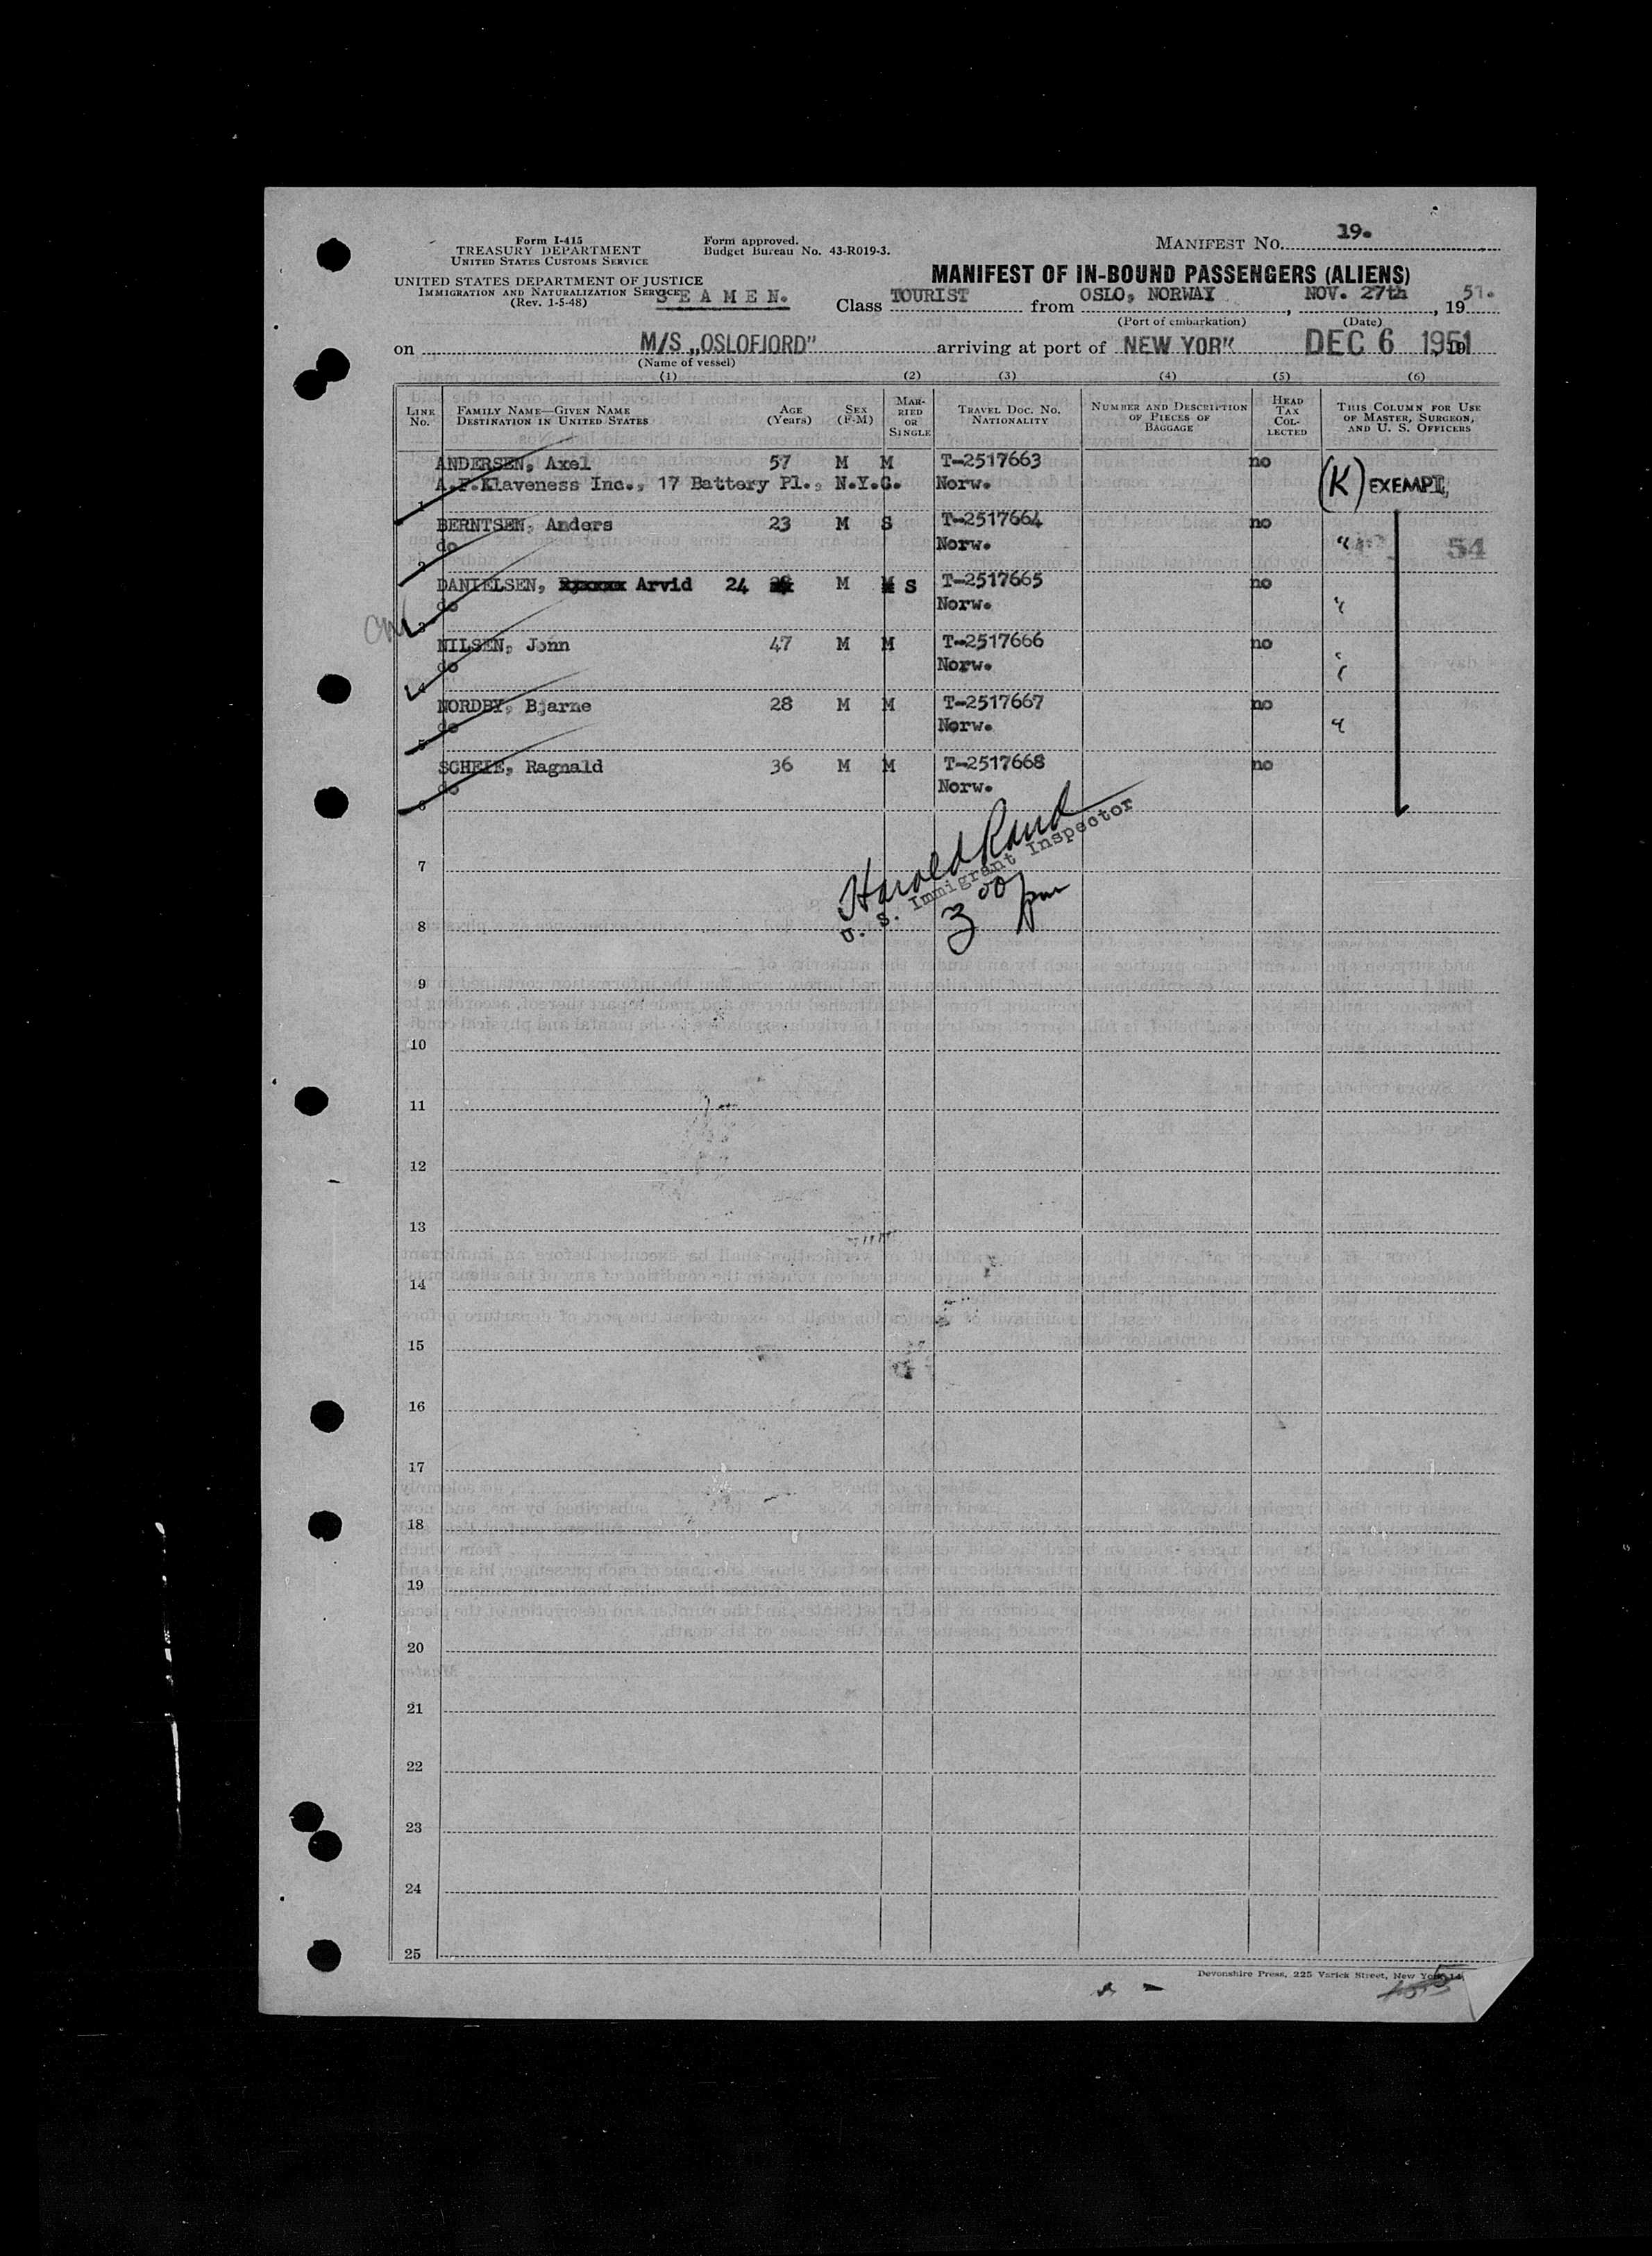 Form I-415
TREASURY DEPARTMENT
UNITED STATES CUSTOMS SERVICE
Form approved.
Budget Bureau No. 43-R019-3.
MANIFEST NO. 19.
UNITED STATES DEPARTMENT OF JUSTICE
IMMIGRATION AND NATURALIZATION SERVICE
(Rev. 1-5-48)
SEAMEN.
MANIFEST OF IN-BOUND PASSENGERS (ALIENS)
Class TOURIST from OSLO, NORWAY, NOV. 27th, 1951.
(Port of embarkation) (Date)
on M/S „OSLOFJORD" arriving at port of NEW YORK DEC 6 1951
(Name of vessel)
(1) (2) (3) (4) (5) (6)
LINE No. FAMILY NAME—GIVEN NAME DESTINATION IN UNITED STATES AGE (Years) SEX (F-M) MARRIED OR SINGLE TRAVEL DOC. NO. NATIONALITY NUMBER AND DESCRIPTION OF PIECES OF BAGGAGE HEAD TAX COLLECTED THIS COLUMN FOR USE OF MASTER, SURGEON, AND U. S. OFFICERS
ANDERSEN, Axel 57 M M T-2517663 no
1 A.F.Klaveness Inc., 17 Battery Pl., N.Y.C. Norw. (K) EXEMPT
BERNTSEN, Anders 23 M S T-2517664 no
2 do Norw. " 54
DANIELSEN, Arvid 24 M S T-2517665 no
3 do Norw. "
NILSEN, John 47 M M T-2517666 no
4 do Norw. "
NORDBY, Bjarne 28 M M T-2517667 no
5 do Norw. "
SCHEIE, Ragnald 36 M M T-2517668 no
6 do Norw.
Harold Rand
U. S. Immigrant Inspector
3 00 pm
7
8
9
10
11
12
13
14
15
16
17
18
19
20
21
22
23
24
25
Devonshire Press, 225 Varick Street, New York 14